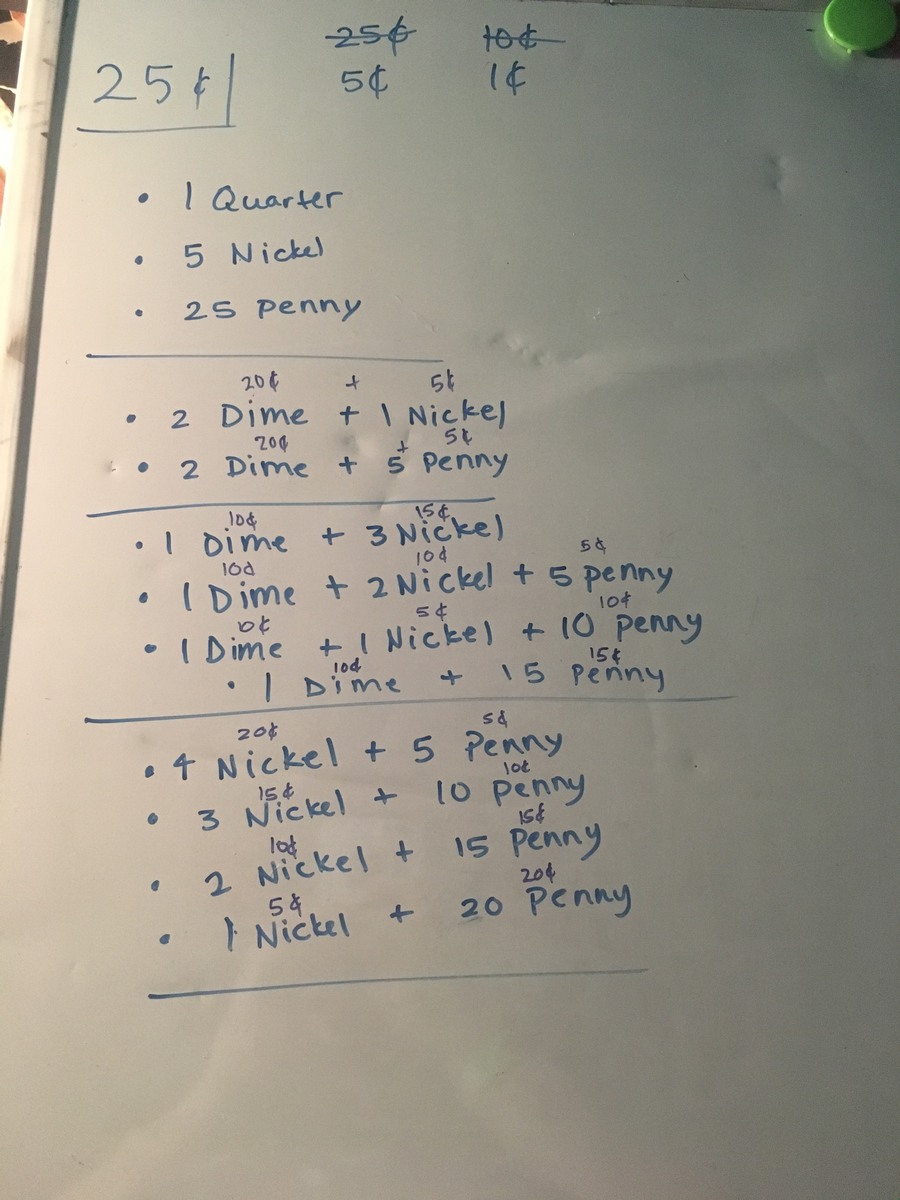 25¢ 10¢
25¢ 5¢ 1¢
• 1 Quarter
• 5 Nickel
• 25 penny
20¢ + 5¢
• 2 Dime + 1 Nickel
20¢ + 5¢
• 2 Dime + 5 Penny
10¢ 15¢
• 1 Dime + 3 Nickel
10¢ 10¢ 5¢
• 1 Dime + 2 Nickel + 5 penny
10¢ 5¢ 10¢
• 1 Dime + 1 Nickel + 10 penny
10¢ 15¢
• 1 Dime + 15 Penny
20¢ 5¢
• 4 Nickel + 5 Penny
15¢ 10¢
• 3 Nickel + 10 penny
10¢ 15¢
• 2 Nickel + 15 Penny
5¢ 20¢
• 1 Nickel + 20 Penny